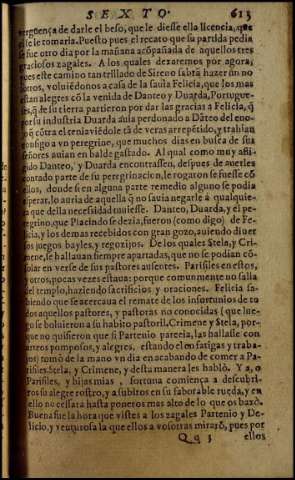 SEXTO. 613
verguença de darle el beso, que le diesse ella licencia, que
el se le tomaria. Puesto pues el recato que su partida pedia
se fue otro dia por la mañana acõpañada de aquellos tres
graciosos zagales. A los quales dexaremos por agora;
pues este camino tan trillado de Sireno sabrã hazer sin no
sotros, voluiẽdonos a casa de la sauia Felicia, que los mas
estan alegres cõ la venida de Danteo y Duarda, Portugue-
ses, q̃ de su tierra partieron por dar las gracias a Felicia, q̃
por su industria Duarda auia perdonado a Dãteo del eno-
jo q̃ cõtra el tenia viẽdole tã de veras arrepẽtido, y trahian
consigo a vn peregrino, que muchos dias en busca de sus
señores auian en balde gastado. Al qual como muy afli-
gido Danteo, y Duarda encontrassen, despues de auerles
contado parte de su peregrinacion, le rogaron se fuesse cõ
ellos, donde si en alguna parte remedio alguno se podia
esperar, lo auria de aquella q̃ no sauia negarle a qualquie-
ra que della necessidad tuuiesse. Danteo, Duarda, y el pe-
regrino, que Placindo se dezia, fueron (como digo) de Fe-
licia, y los demas recebidos con gran gozo, auiendo diuer
sos juegos bayles, y regozijos. De los quales Stela, y Cri-
mene, se hallauan siempre apartadas, que no se podian cõ-
solar en verse de sus pastores ausentes. Parisiles en estos,
y otros, pocas vezes estaua: porque comunmente no salia
del templo, haziendo sacrificios y oraciones. Felicia sa-
biendo que se acercaua el remate de los infortunios de to
dos aquellos pastores, y pastoras no conocidas (que lue-
go se boluieron a su habito pastoril, Crimene y Stela, por-
que no quisieron que si Partenio parecia, las hallasse con
arreos pomposos, y alegres, estando el en fatigas y traba-
jos) tomò de la mano vn dia en acabando de comer a Pa-
risiles, Stela, y Crimene, y desta manera les hablò. Ya, o
Parisiles, y hijas mias, fortuna comiença a descubri-
ros su alegre rostro, y a subiros en su faborable rueda, y en
ello no cessarà hasta poneros mas alto de lo que os baxò.
Buena fue la hora que vistes a los zagales Partenio y De-
licio, y venturosa la que ellos a vosotras mirarõ, pues por
Qq 3 ellos